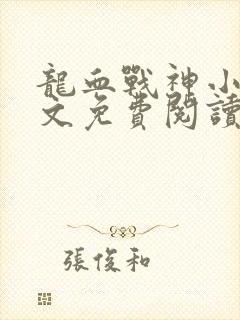 龍血戰神小
文免費閱讀
張俊和